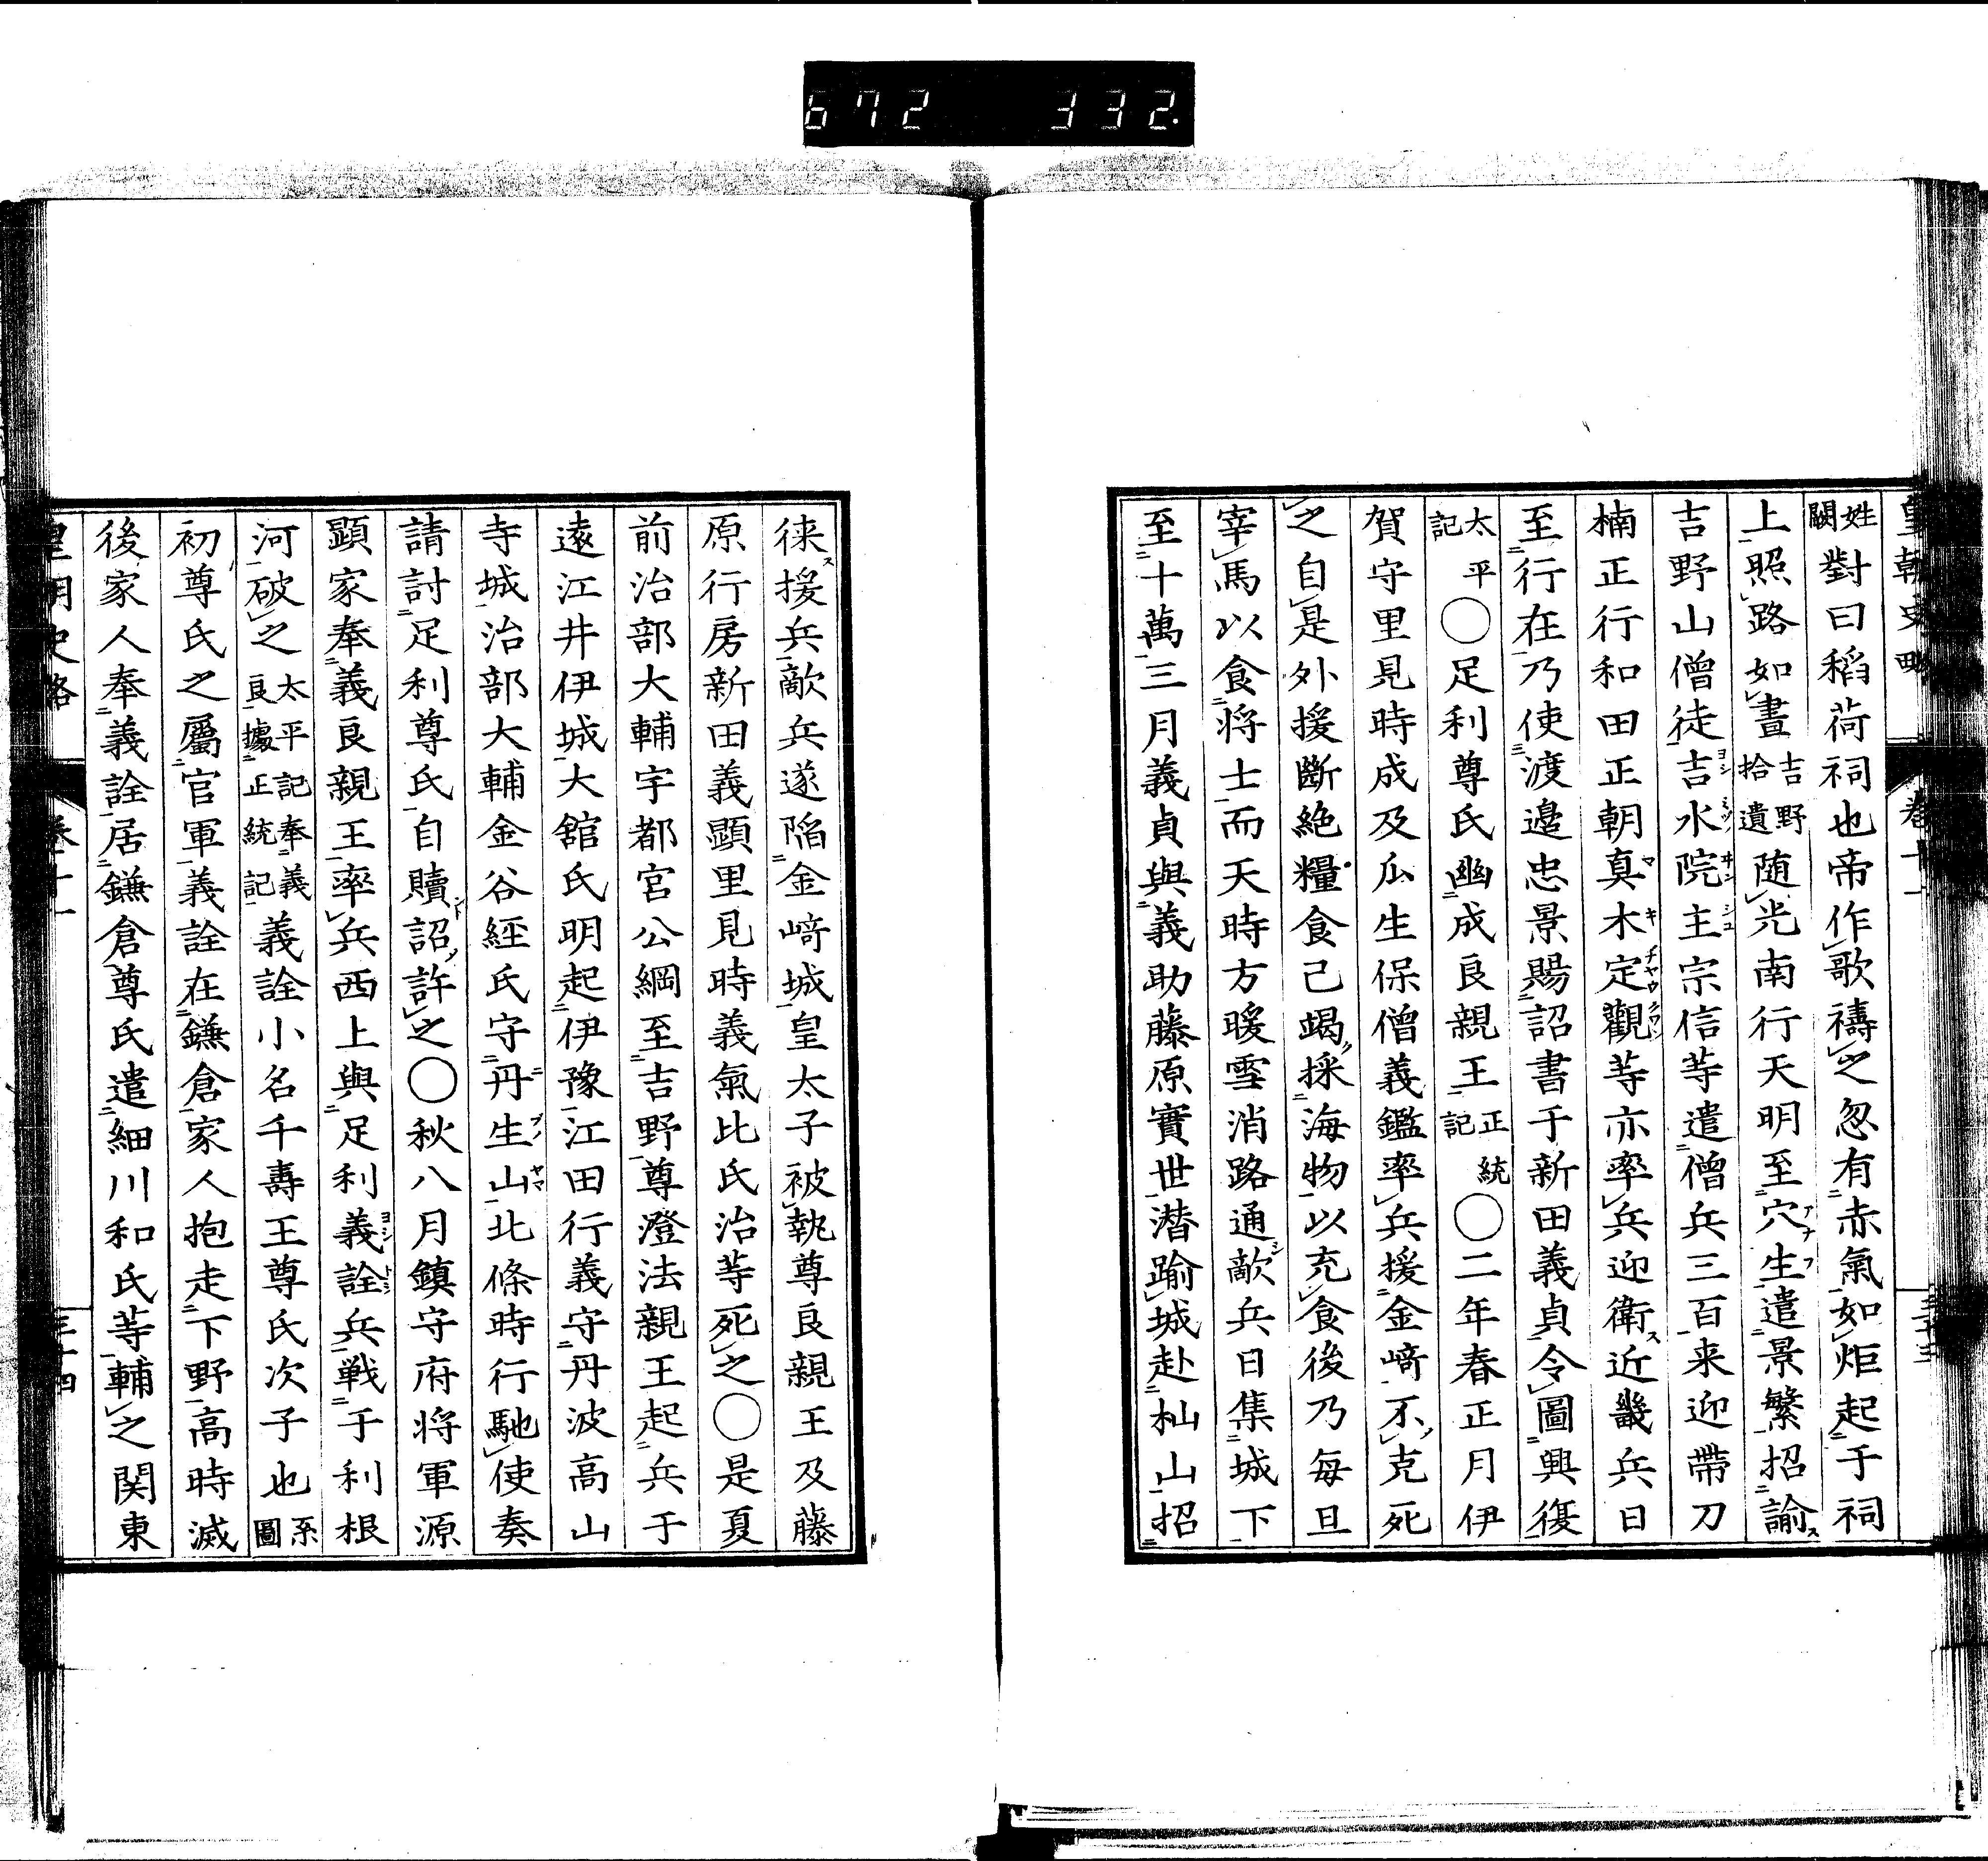 672 332
皇朝史略 卷十一
姓闕對曰稻荷祠也帝作歌禱之忽有赤氣如炬起于祠
上照路如晝吉野拾遺随光南行天明至穴生遣景繁招諭
吉野山僧徒吉水院主宗信等遣僧兵三百来迎帶刀
楠正行和田正朝真木定觀等亦率兵迎衛近畿兵日
至行在乃使渡邉忠景賜詔書于新田義貞令圖興復
太平記〇足利尊氏幽成良親王正統記〇二年春正月伊
賀守里見時成及瓜生保僧義鑑率兵援金﨑不克死
之自是外援斷絶糧食己竭採海物以充食後乃每旦
宰馬以食将士而天時方暖雪消路通敵兵日集城下
至十萬三月義貞與義助藤原實世潜踰城赴杣山招
徠援兵敵兵遂陷金﨑城皇太子被執尊良親王及藤
原行房新田義顕里見時義氣比氏治等死之〇是夏
前治部大輔宇都宮公綱至吉野尊澄法親王起兵于
遠江井伊城大舘氏明起伊豫江田行義守丹波高山
寺城治部大輔金谷經氏守丹生山北條時行馳使奏
請討足利尊氏自贖詔許之〇秋八月鎮守府将軍源
顕家奉義良親王率兵西上與足利義詮兵戦于利根
河破之太平記奉義良據正統記義詮小名千壽王尊氏次子也系圖
初尊氏之屬官軍義詮在鎌倉家人抱走下野高時滅
後家人奉義詮居鎌倉尊氏遣細川和氏等輔之関東
皇朝史略 卷十一 三十四